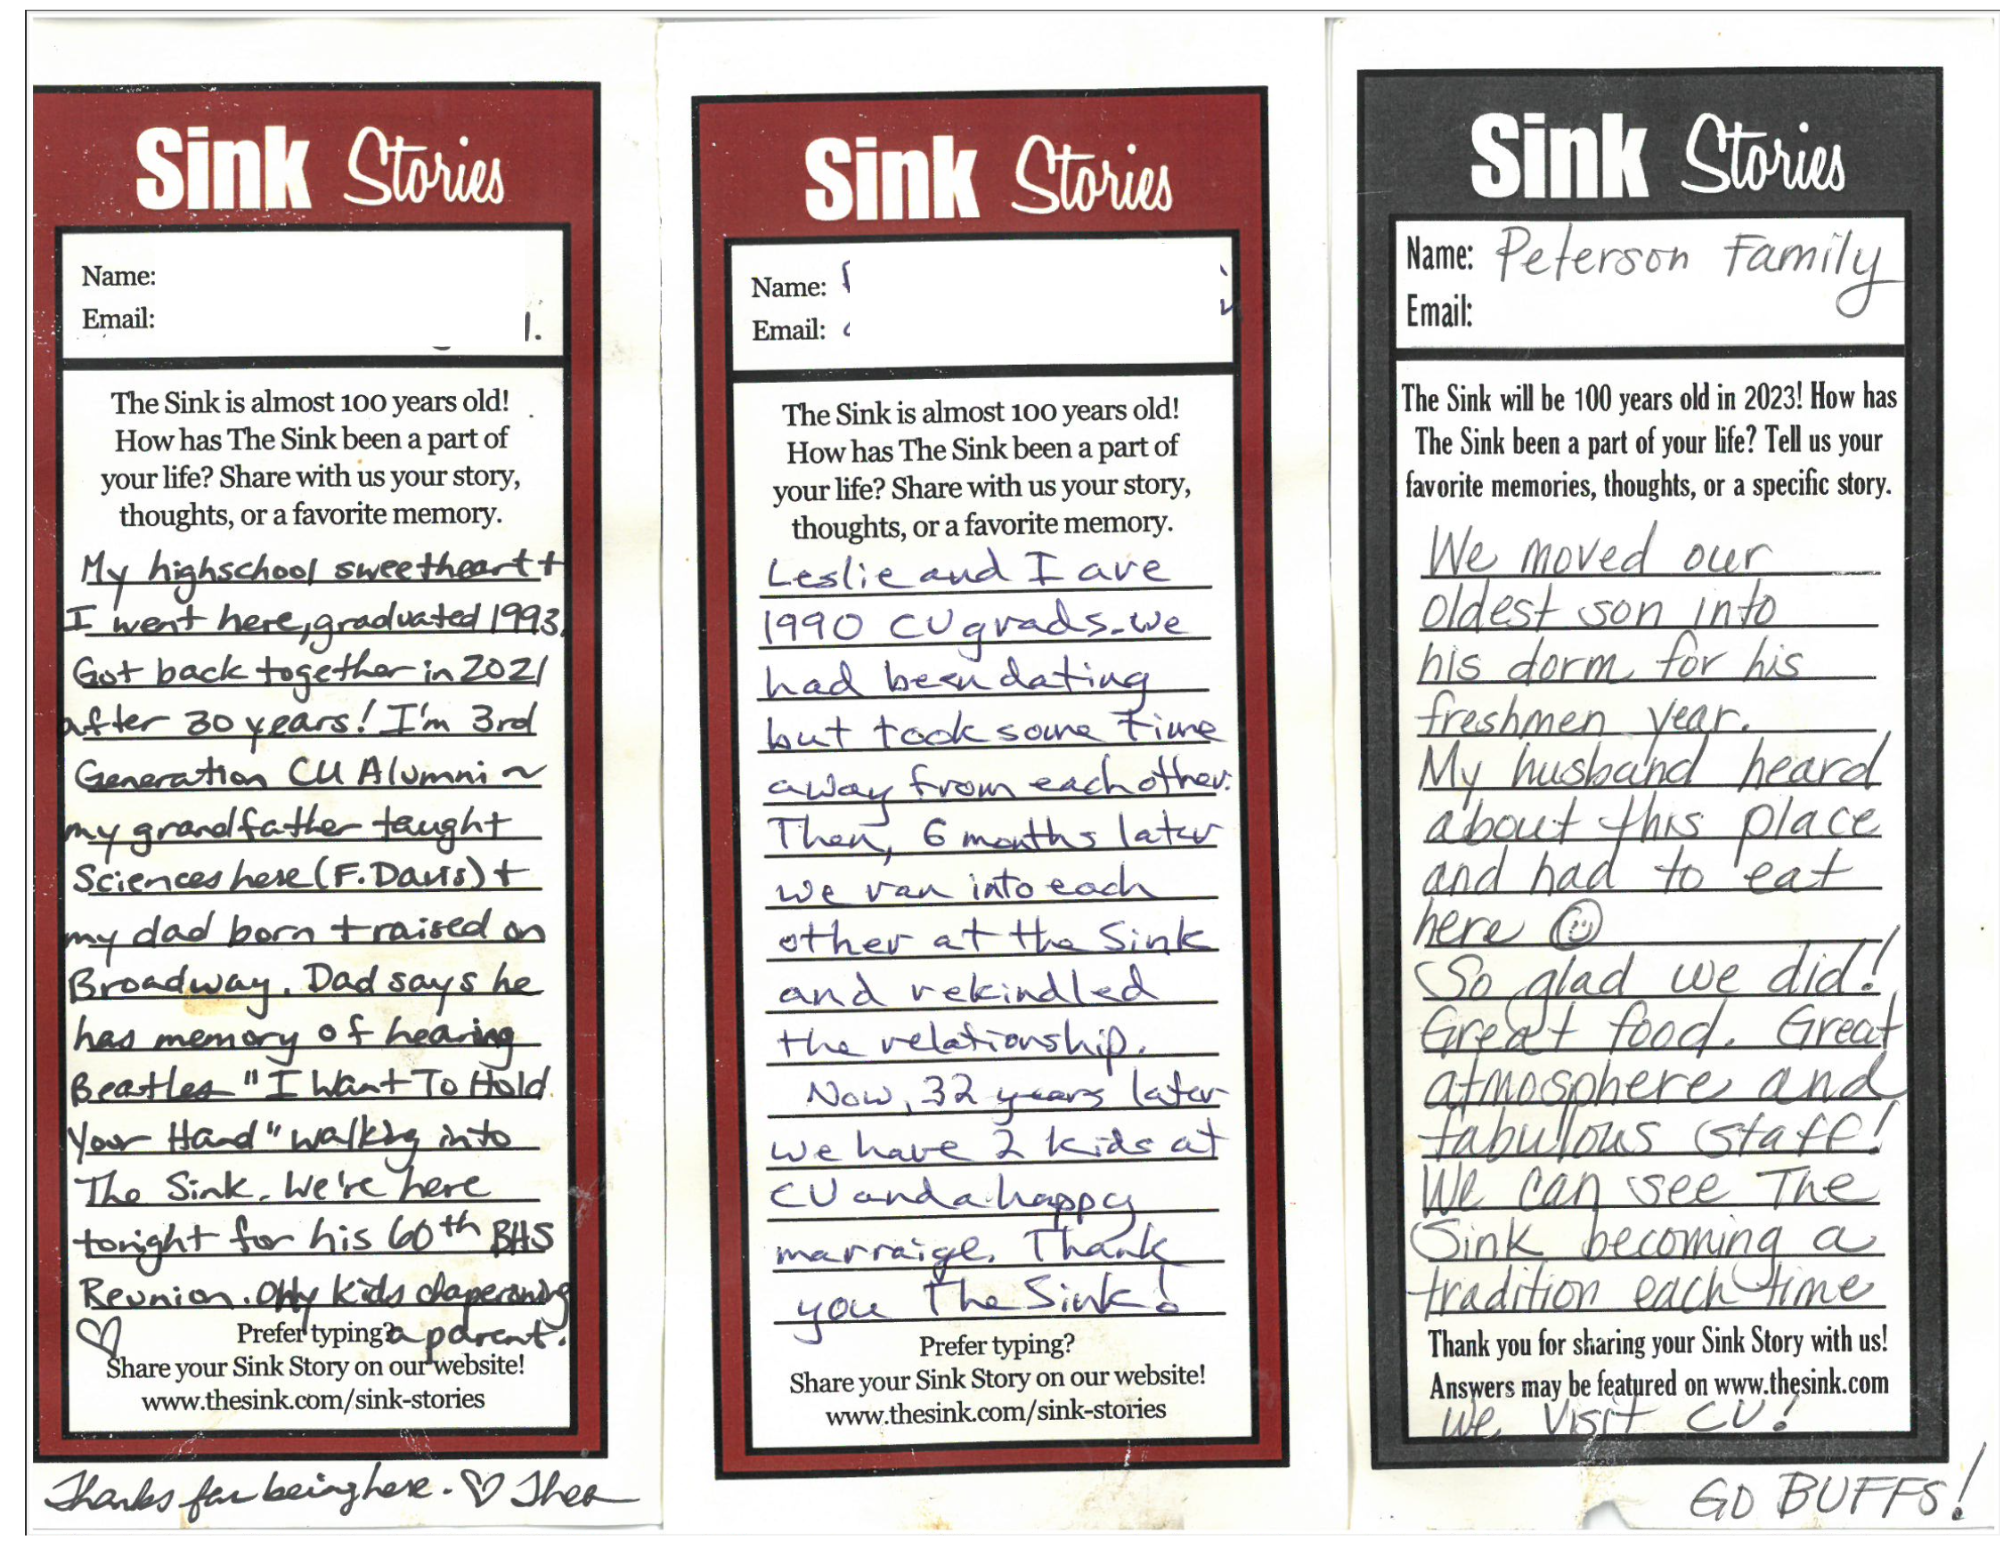 Sink Stories
Name:
Email:
The Sink is almost 100 years old!
How has The Sink been a part of
your life? Share with us your story,
thoughts, or a favorite memory.
My highschool sweetheart +
I went here, graduated 1993.
Got back together in 2021
after 30 years! I'm 3rd
Generation CU Alumni ~
my grandfather taught
Sciences here (F. Davis) +
my dad born + raised on
Broadway. Dad says he
has memory of hearing
Beatles "I Want To Hold
Your Hand" walking into
The Sink. We're here
tonight for his 60th BHS
Reunion. Only kids chaperoning
a parent. ♡
Prefer typing?
Share your Sink Story on our website!
www.thesink.com/sink-stories
Thanks for being here. ♡ Thea
Sink Stories
Name:
Email:
The Sink is almost 100 years old!
How has The Sink been a part of
your life? Share with us your story,
thoughts, or a favorite memory.
Leslie and I are
1990 CU grads. we
had been dating
but took some time
away from each other.
Then, 6 months later
we ran into each
other at the Sink
and rekindled
the relationship.
Now, 32 years later
we have 2 kids at
CU and a happy
marraige. Thank
you The Sink!
Prefer typing?
Share your Sink Story on our website!
www.thesink.com/sink-stories
Sink Stories
Name: Peterson Family
Email:
The Sink will be 100 years old in 2023! How has
The Sink been a part of your life? Tell us your
favorite memories, thoughts, or a specific story.
We moved our
oldest son into
his dorm for his
freshmen year.
My husband heard
about this place
and had to eat
here ☺
So glad we did!
Great food. Great
atmosphere and
fabulous staff!
We can see The
Sink becoming a
tradition each time
Thank you for sharing your Sink Story with us!
Answers may be featured on www.thesink.com
we visit CU!
GO BUFFS!